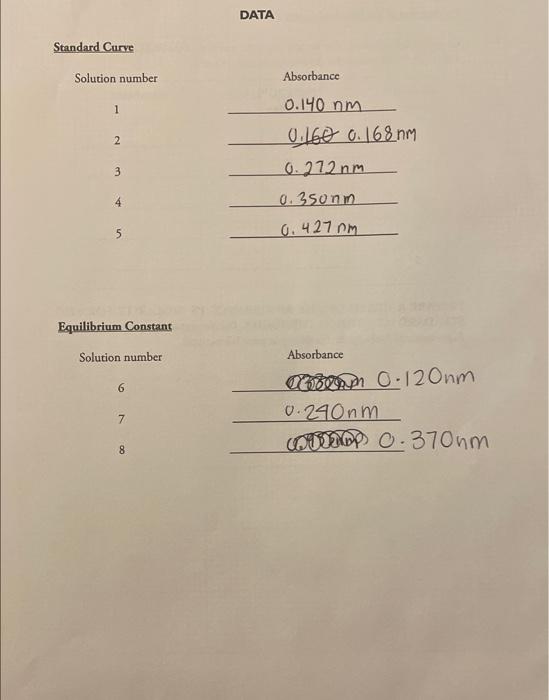 DATA
Standard Curve
Solution number Absorbance
1 0.140 nm
2 0.160 0.168nm
3 0.272nm
4 0.350nm
5 0.427 nm
Equilibrium Constant
Solution number Absorbance
6 0.120nm
7 0.290nm
8 0.370nm